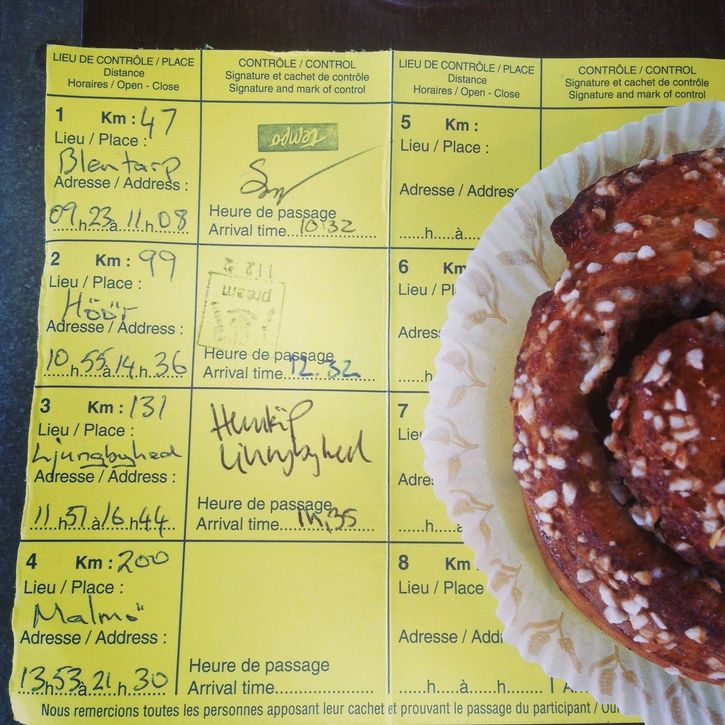 LIEU DE CONTRÔLE / PLACE
Distance
Horaires / Open - Close
CONTRÔLE / CONTROL
Signature et cachet de contrôle
Signature and mark of control
1 Km : 47
Lieu / Place :
Blentarp
Adresse / Address :
09 h 23 à 11 h 08
tempo
Heure de passage
Arrival time 10:32
2 Km : 99
Lieu / Place :
Höör
Adresse / Address :
10 h 55 à 14 h 36
112 2
pream
Heure de passage
Arrival time 12.32
3 Km : 131
Lieu / Place :
Ljungbyhed
Adresse / Address :
11 h 57 à 16 h 44
Ljungbyhed
Heure de passage
Arrival time 14,35
4 Km : 200
Lieu / Place :
Malmö
Adresse / Address :
13 h 53 à 21 h 30
Heure de passage
Arrival time
LIEU DE CONTRÔLE / PLACE
Distance
Horaires / Open - Close
CONTRÔLE / CONTROL
Signature et cachet de contrôle
Signature and mark of control
5 Km :
Lieu / Place :
Adresse / Address :
h à
6 K
Lieu / Pl
Adress
h
7
Lie
Adr
h
8 Km
Lieu / Place
Adresse / Addr
h à h
Arr
Nous remercions toutes les personnes apposant leur cachet et prouvant le passage du participant /